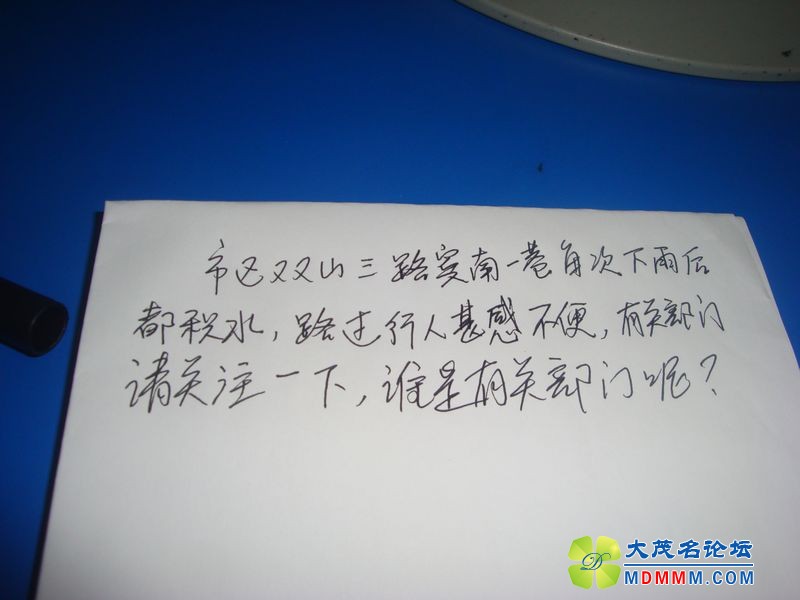 市区双山三路窦南一巷每次下雨后
都积水，路过行人甚感不便，有关部门
请关注一下，谁是有关部门呢？
大茂名论坛
MDMMM.COM